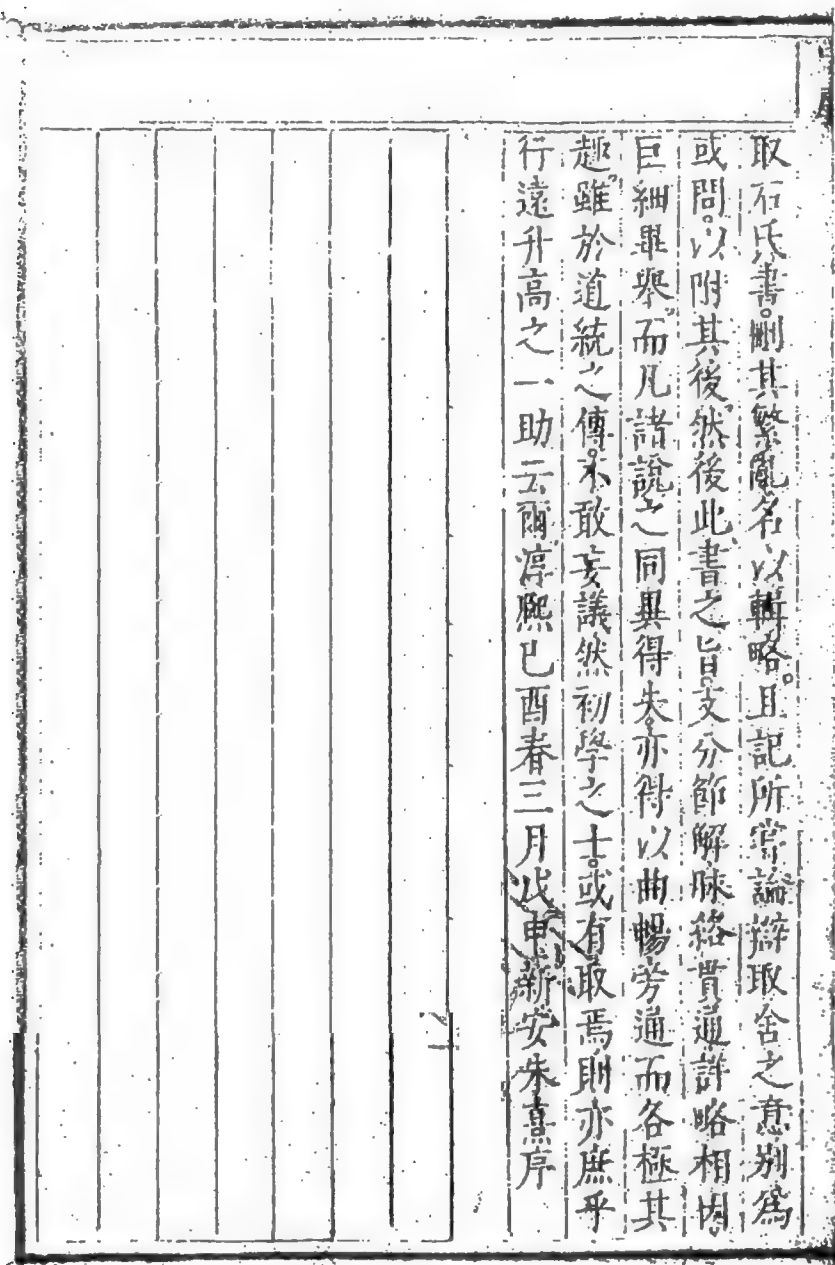 序
取石氏書。刪其繁亂名以輯略。且記所嘗論辯取舍之意别爲
或問。以附其後。然後此書之旨。支分節解。脉絡貫通。詳略相因。
巨細畢舉。而凡諸說之同異得失。亦得以曲暢旁通而各極其
趣。雖於道統之傳。不敢妄議。然初學之士。或有取焉。則亦庶乎
行遠升高之一助云爾。淳熙己酉春三月戊申新安朱熹序